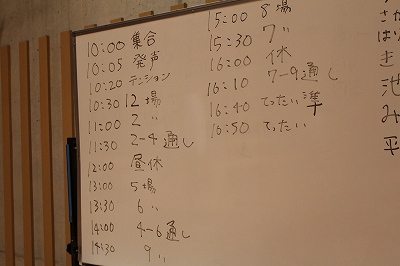 10:00 集合
10:05 発声
10:20 テンション
10:30 12場
11:00 2 〃
11:30 2-4通し
12:00 昼休
13:00 5場
13:30 6 〃
14:00 4-6通し
14:30 9 〃
15:00 8場
15:30 7 〃
16:00 休
16:10 7-9通し
16:40 てったい準
16:50 てったい
さか
はり
き
池
み
平